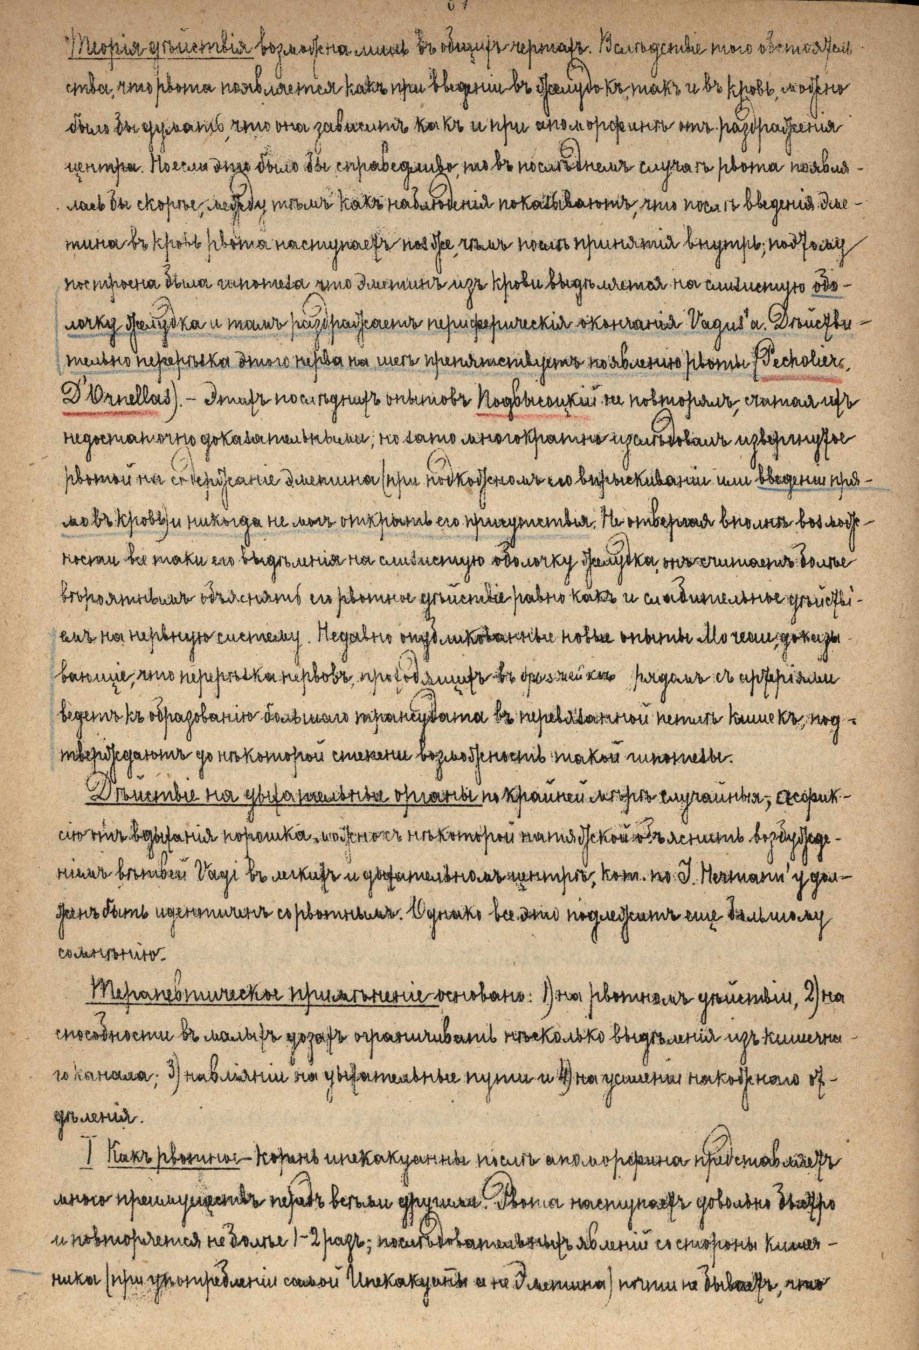 Теорія дѣйствія возможна лишь въ общихъ чертахъ. Вслѣдствіе того обстоятель-
ства, что рвота появляется какъ при введеніи въ желудокъ, такъ и въ кровь, можно
было бы думать, что она зависитъ какъ и при апоморфинѣ отъ раздраженія
центра. Но если это было бы справедливо, то въ послѣднемъ случаѣ рвота появля-
лась бы скорѣе, между тѣмъ какъ наблюденія показываютъ, что послѣ введенія эме-
тина въ кровь рвота наступаетъ позже, чѣмъ послѣ принятія внутрь; поэтому
построена была гипотеза что эметинъ изъ крови выдѣляется на слизистую обо-
лочку желудка и тамъ раздражаетъ периферическія окончанія Vagus'a. Дѣйстви-
тельно перерѣзка этого нерва на шеѣ препятствуетъ появленію рвоты (Pecholier,
D'Ornellas). – Этихъ послѣднихъ опытовъ Подвысоцкій не повторялъ, считая ихъ
недостаточно доказательными; но зато многократно изслѣдовалъ извергнутое
рвотой на содержаніе эметина (при подкожномъ его впрыскиваніи или введеніи пря-
мо въ кровь) и никогда не могъ открыть его присутствія. Не отвергая вполнѣ возмож-
ности все таки его выдѣленія на слизистую оболочку желудка, онъ считаетъ болѣе
вѣроятнымъ объяснять его рвотное дѣйствіе равно какъ и слабительное дѣйстві-
емъ на нервную систему. Недавно опубликованные новые опыты Moreau, доказы-
вающіе, что перерѣзка нервовъ, проходящихъ въ брызжейкѣ рядомъ съ артеріями
ведетъ къ образованію большаго транссудата въ перевязанной петлѣ кишекъ, под-
тверждаютъ до нѣкоторой степени возможность такой гипотезы.
Дѣйствіе на дыхательные органы по крайней мѣрѣ случайныя, асфик-
сію отъ вдыханія порошка можно съ нѣкоторой натяжкой объяснить возбужде-
ніемъ вѣтвей Vagi въ легкихъ и дыхательномъ центрѣ, кот. по J. Hermann'у дол-
женъ быть идентиченъ со рвотнымъ. Однако все это подлежитъ еще большому
сомнѣнію.
Терапевтическое примѣненіе основано: 1) на рвотномъ дѣйствіи, 2) на
способности въ малыхъ дозахъ ограничивать нѣсколько выдѣленія изъ кишечна-
го канала; 3) на вліяніи на дыхательные пути и 4) на усиленіи накожнаго от-
дѣленія.
I Какъ рвотное – корень ипекакуанны послѣ апоморфина представляетъ
много преимуществъ передъ всѣми другими. Рвота наступаетъ довольно быстро
и повторяется не болѣе 1-2 разъ; послѣдовательныхъ явленій со стороны кишеч-
ника (при употребленіи самой Ипекакуаны а не Эметина) почти не бываетъ, что